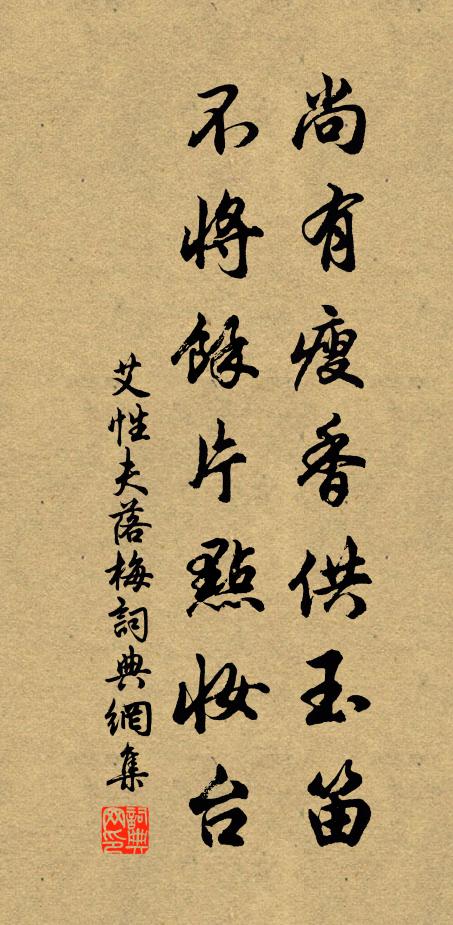 尚有瘦香供玉笛
不將餘片點妝台
艾性夫落梅詞典網集
詞典網印